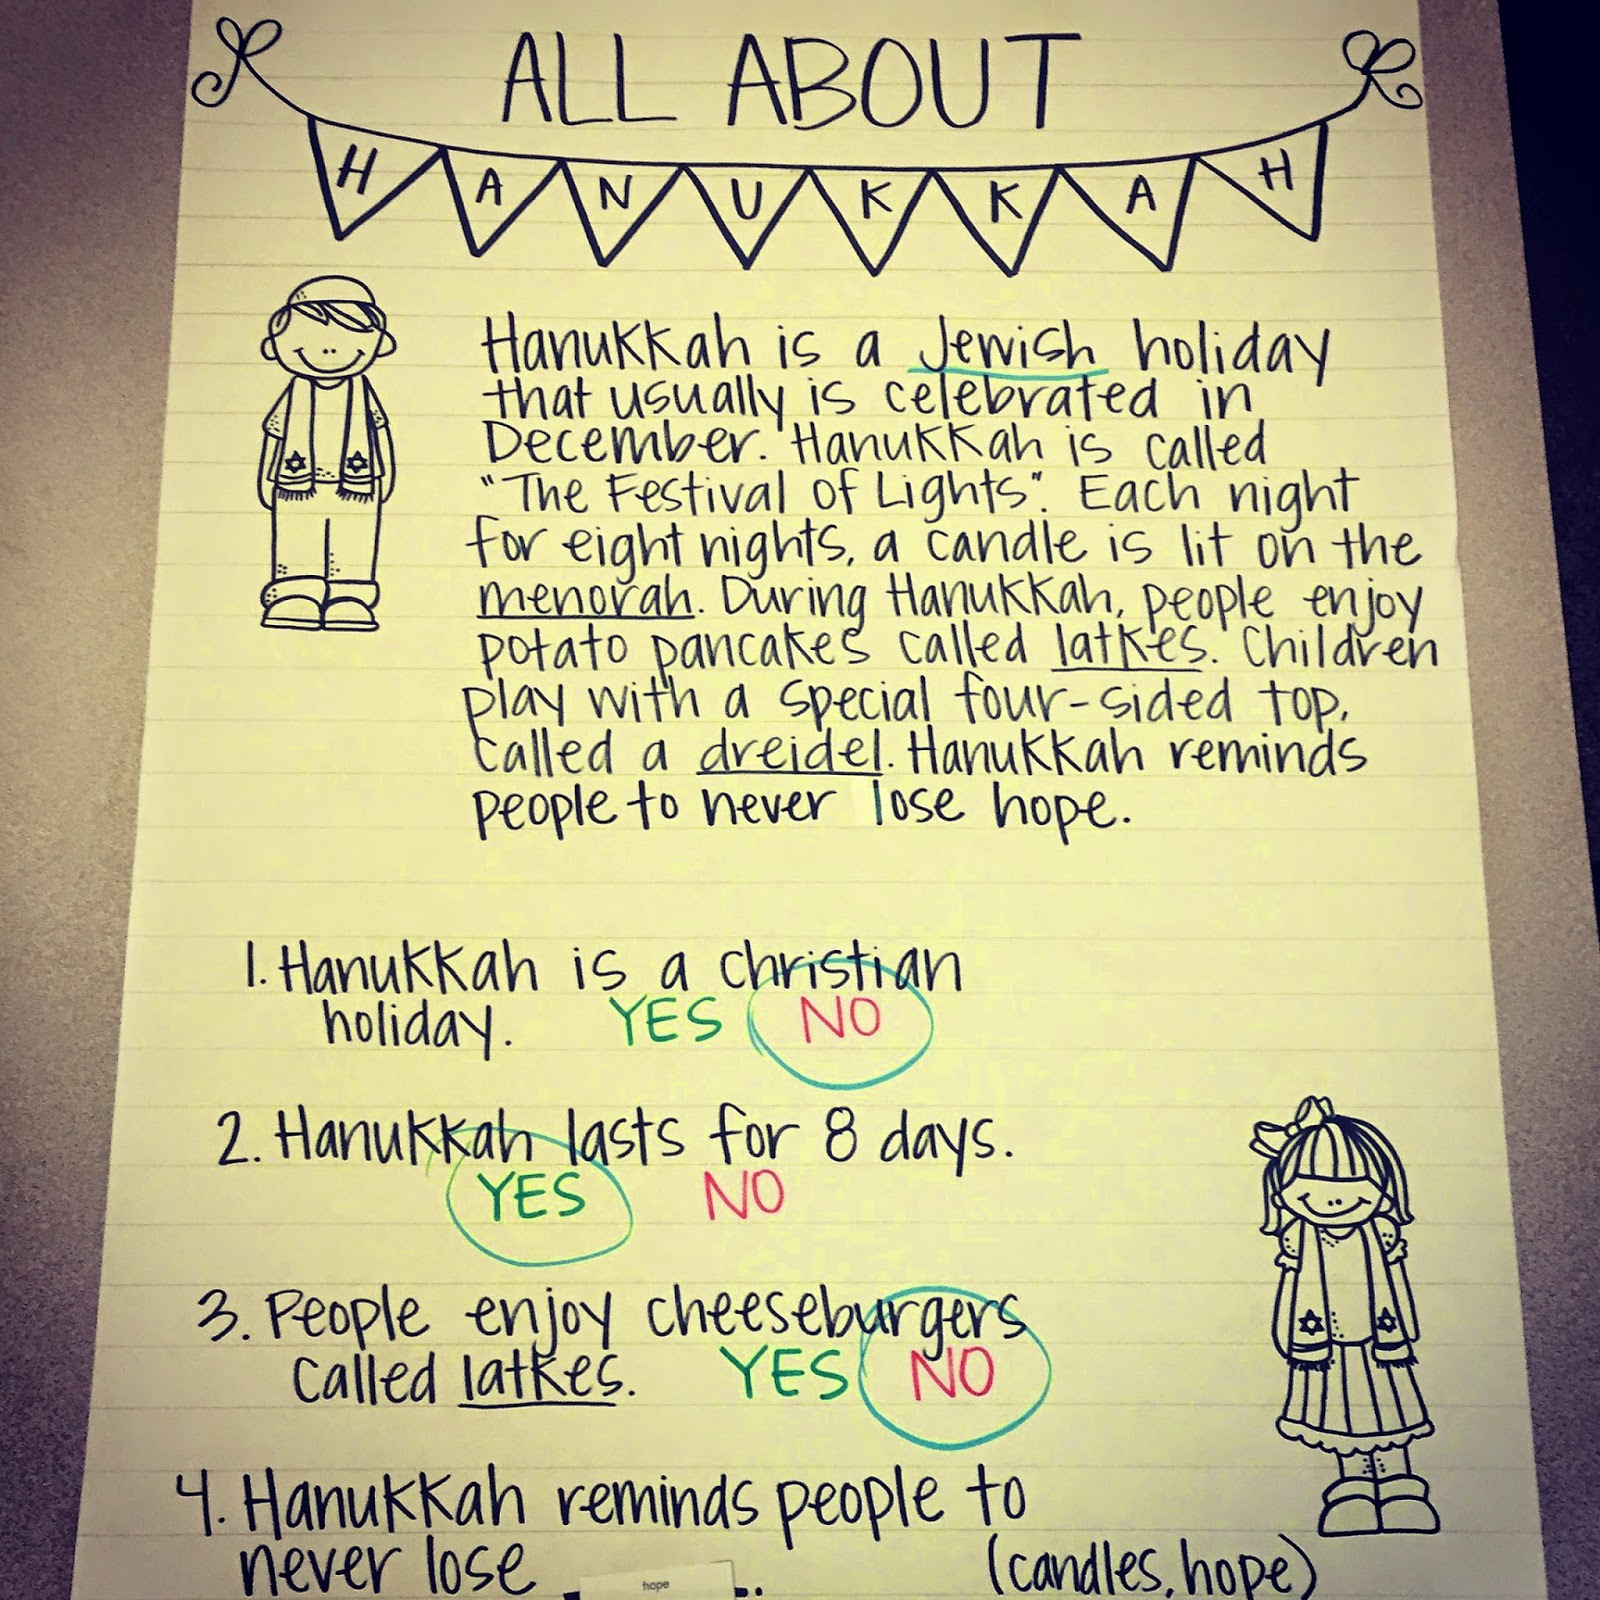 ALL ABOUT
HANUKKAH
Hanukkah is a Jewish holiday
that usually is celebrated in
December. Hanukkah is called
"The Festival of Lights". Each night
for eight nights, a candle is lit on the
menorah. During Hanukkah, people enjoy
potato pancakes called latkes. Children
play with a special four-sided top,
called a dreidel. Hanukkah reminds
people to never lose hope.
1. Hanukkah is a christian
holiday. YES NO
2. Hanukkah lasts for 8 days.
YES NO
3. People enjoy cheeseburgers
called latkes. YES NO
4. Hanukkah reminds people to
never lose hope. (candles, hope)